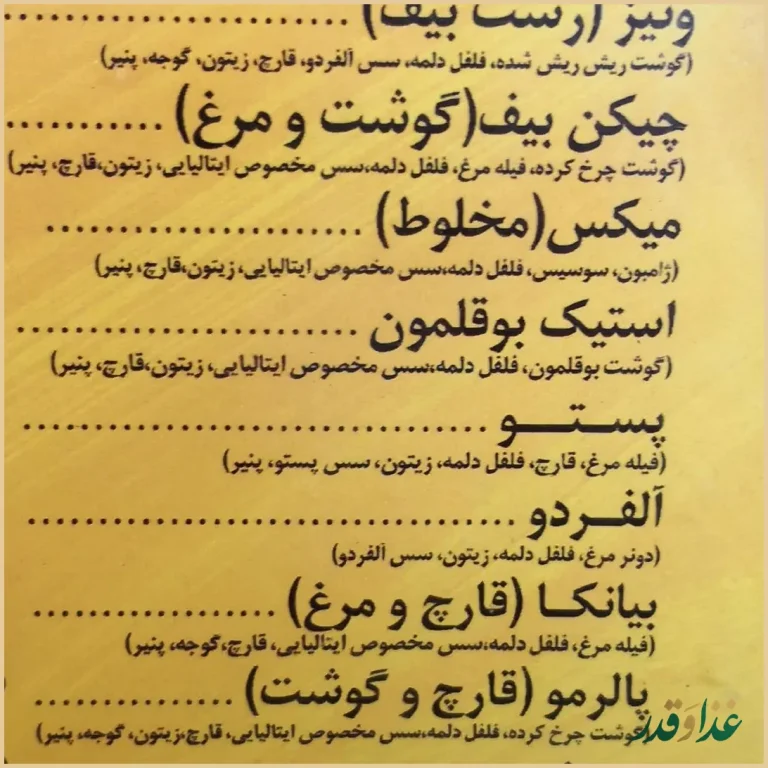 ونیز (رست بیف) ......................
(گوشت ریش ریش شده، فلفل دلمه، سس آلفردو، قارچ، زیتون، گوجه، پنیر)
چیکن بیف(گوشت و مرغ) ...........
(گوشت چرخ کرده، فیله مرغ، فلفل دلمه،سس مخصوص ایتالیایی، زیتون،قارچ، پنیر)
میکس(مخلوط) ......................
(ژامبون، سوسیس، فلفل دلمه،سس مخصوص ایتالیایی، زیتون،قارچ، پنیر)
استیک بوقلمون ........................
(گوشت بوقلمون، فلفل دلمه،سس مخصوص ایتالیایی، زیتون،قارچ، پنیر)
پستو .................................
(فیله مرغ، قارچ، فلفل دلمه، زیتون، سس پستو، پنیر)
آلفردو ..................................
(دونر مرغ، فلفل دلمه، زیتون، سس آلفردو)
بیانکا (قارچ و مرغ) .................
(فیله مرغ، فلفل دلمه،سس مخصوص ایتالیایی، قارچ،گوجه، پنیر)
پالرمو (قارچ و گوشت) ..............
(گوشت چرخ کرده، فلفل دلمه،سس مخصوص ایتالیایی، قارچ،زیتون، گوجه، پنیر)
غذا و قدر